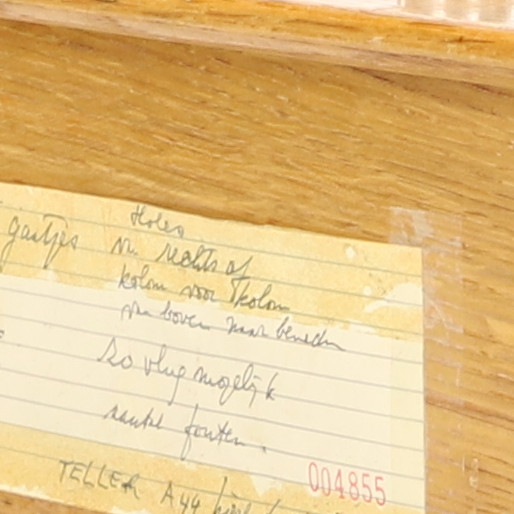 Holes
gaatjes v. rechts af
kolom voor kolom
van boven naar beneden
zo vlug mogelijk
aantal fouten.
TELLER A44
004855